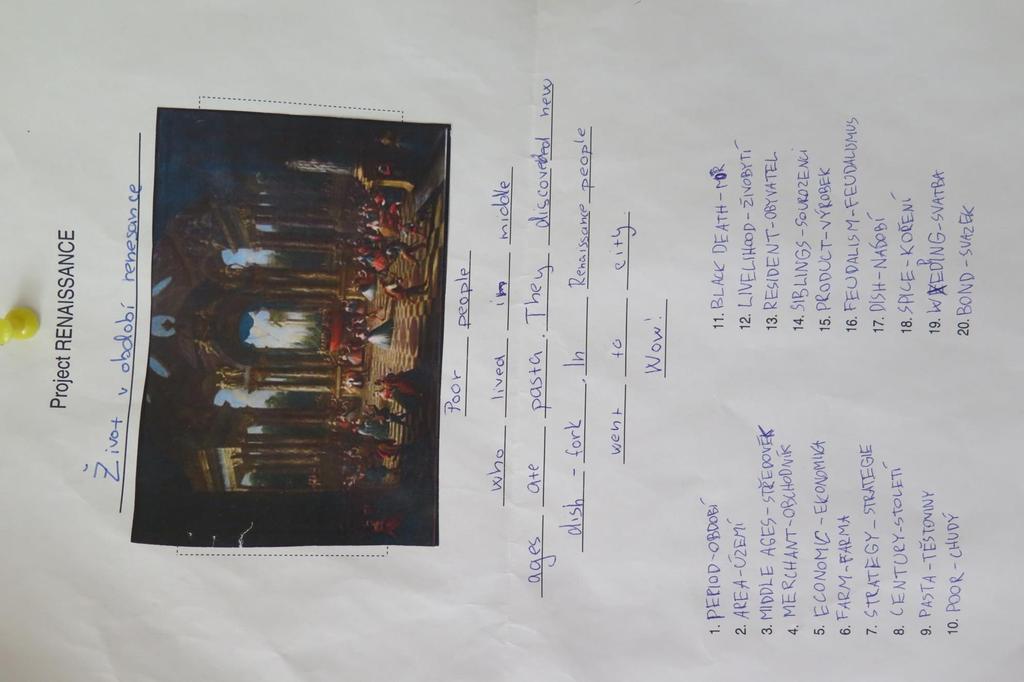 Project RENAISSANCE
Život v období renesance
Poor people
who lived in middle
ages ate pasta. They discovered new
dish - fork. In Renaissance people
went to city
Wow!
1. PERIOD-OBDOBÍ
2. AREA-ÚZEMÍ
3. MIDDLE AGES-STŘEDOVĚK
4. MERCHANT-OBCHODNÍK
5. ECONOMIC-EKONOMIKA
6. FARM-FARMA
7. STRATEGY-STRATEGIE
8. CENTURY-STOLETÍ
9. PASTA-TĚSTOVINY
10. POOR-CHUDÝ
11. BLACK DEATH-MOR
12. LIVELIHOOD-ŽIVOBYTÍ
13. RESIDENT-OBYVATEL
14. SIBLINGS-SOUROZENCI
15. PRODUCT-VÝROBEK
16. FEUDALISM-FEUDALISMUS
17. DISH-NÁDOBÍ
18. SPICE-KOŘENÍ
19. WEDDING-SVATBA
20. BOND-SVAZEK